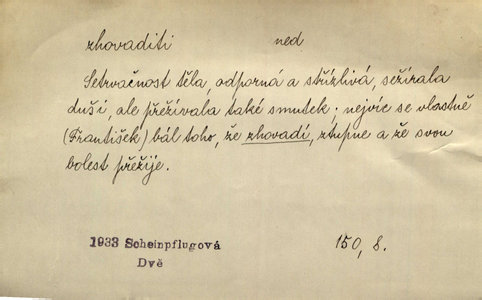 zhovaditi ned
Setrvačnost těla, odporná a střízlivá, sežírala
duši, ale přežívala také smutek; nejvíc se vlastně
(František) bál toho, že zhovadí, ztupne a že svou
bolest přežije.
1933 Scheinpflugová 150, 8.
Dvě